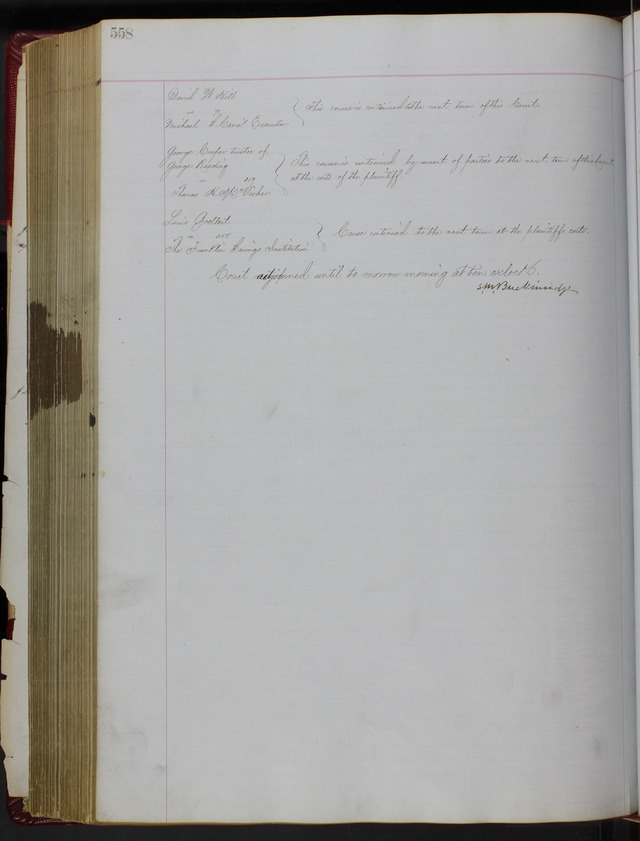 558
David W
vs
Michael Executor
This cause is continued to the next term of this Court
George Cooper trustee of
George Reading
vs 279
Thomas H. McVicker
This cause is continued by consent of parties to the next term of this Court
at the costs of the plaintiff
Louis
vs 288
The Franklin Savings Institution
Cause continued to the next term at the plaintiffs costs.
Court adjourned until to morrow morning at ten oclock.
S M Breckinridge